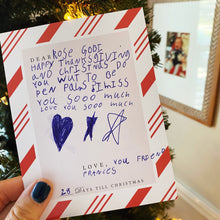 DEAR ROSE GODI
HAPPY THANKSGIVING
AND CHRISTMAS DO
YOU WANT TO BE
PEN PALS I MISS
YOU SOOO MUCH
LOVE YOU SOOO MUCH
LOVE, YOU FRIEND
FRANCES
28 DAYS TILL CHRISTMAS